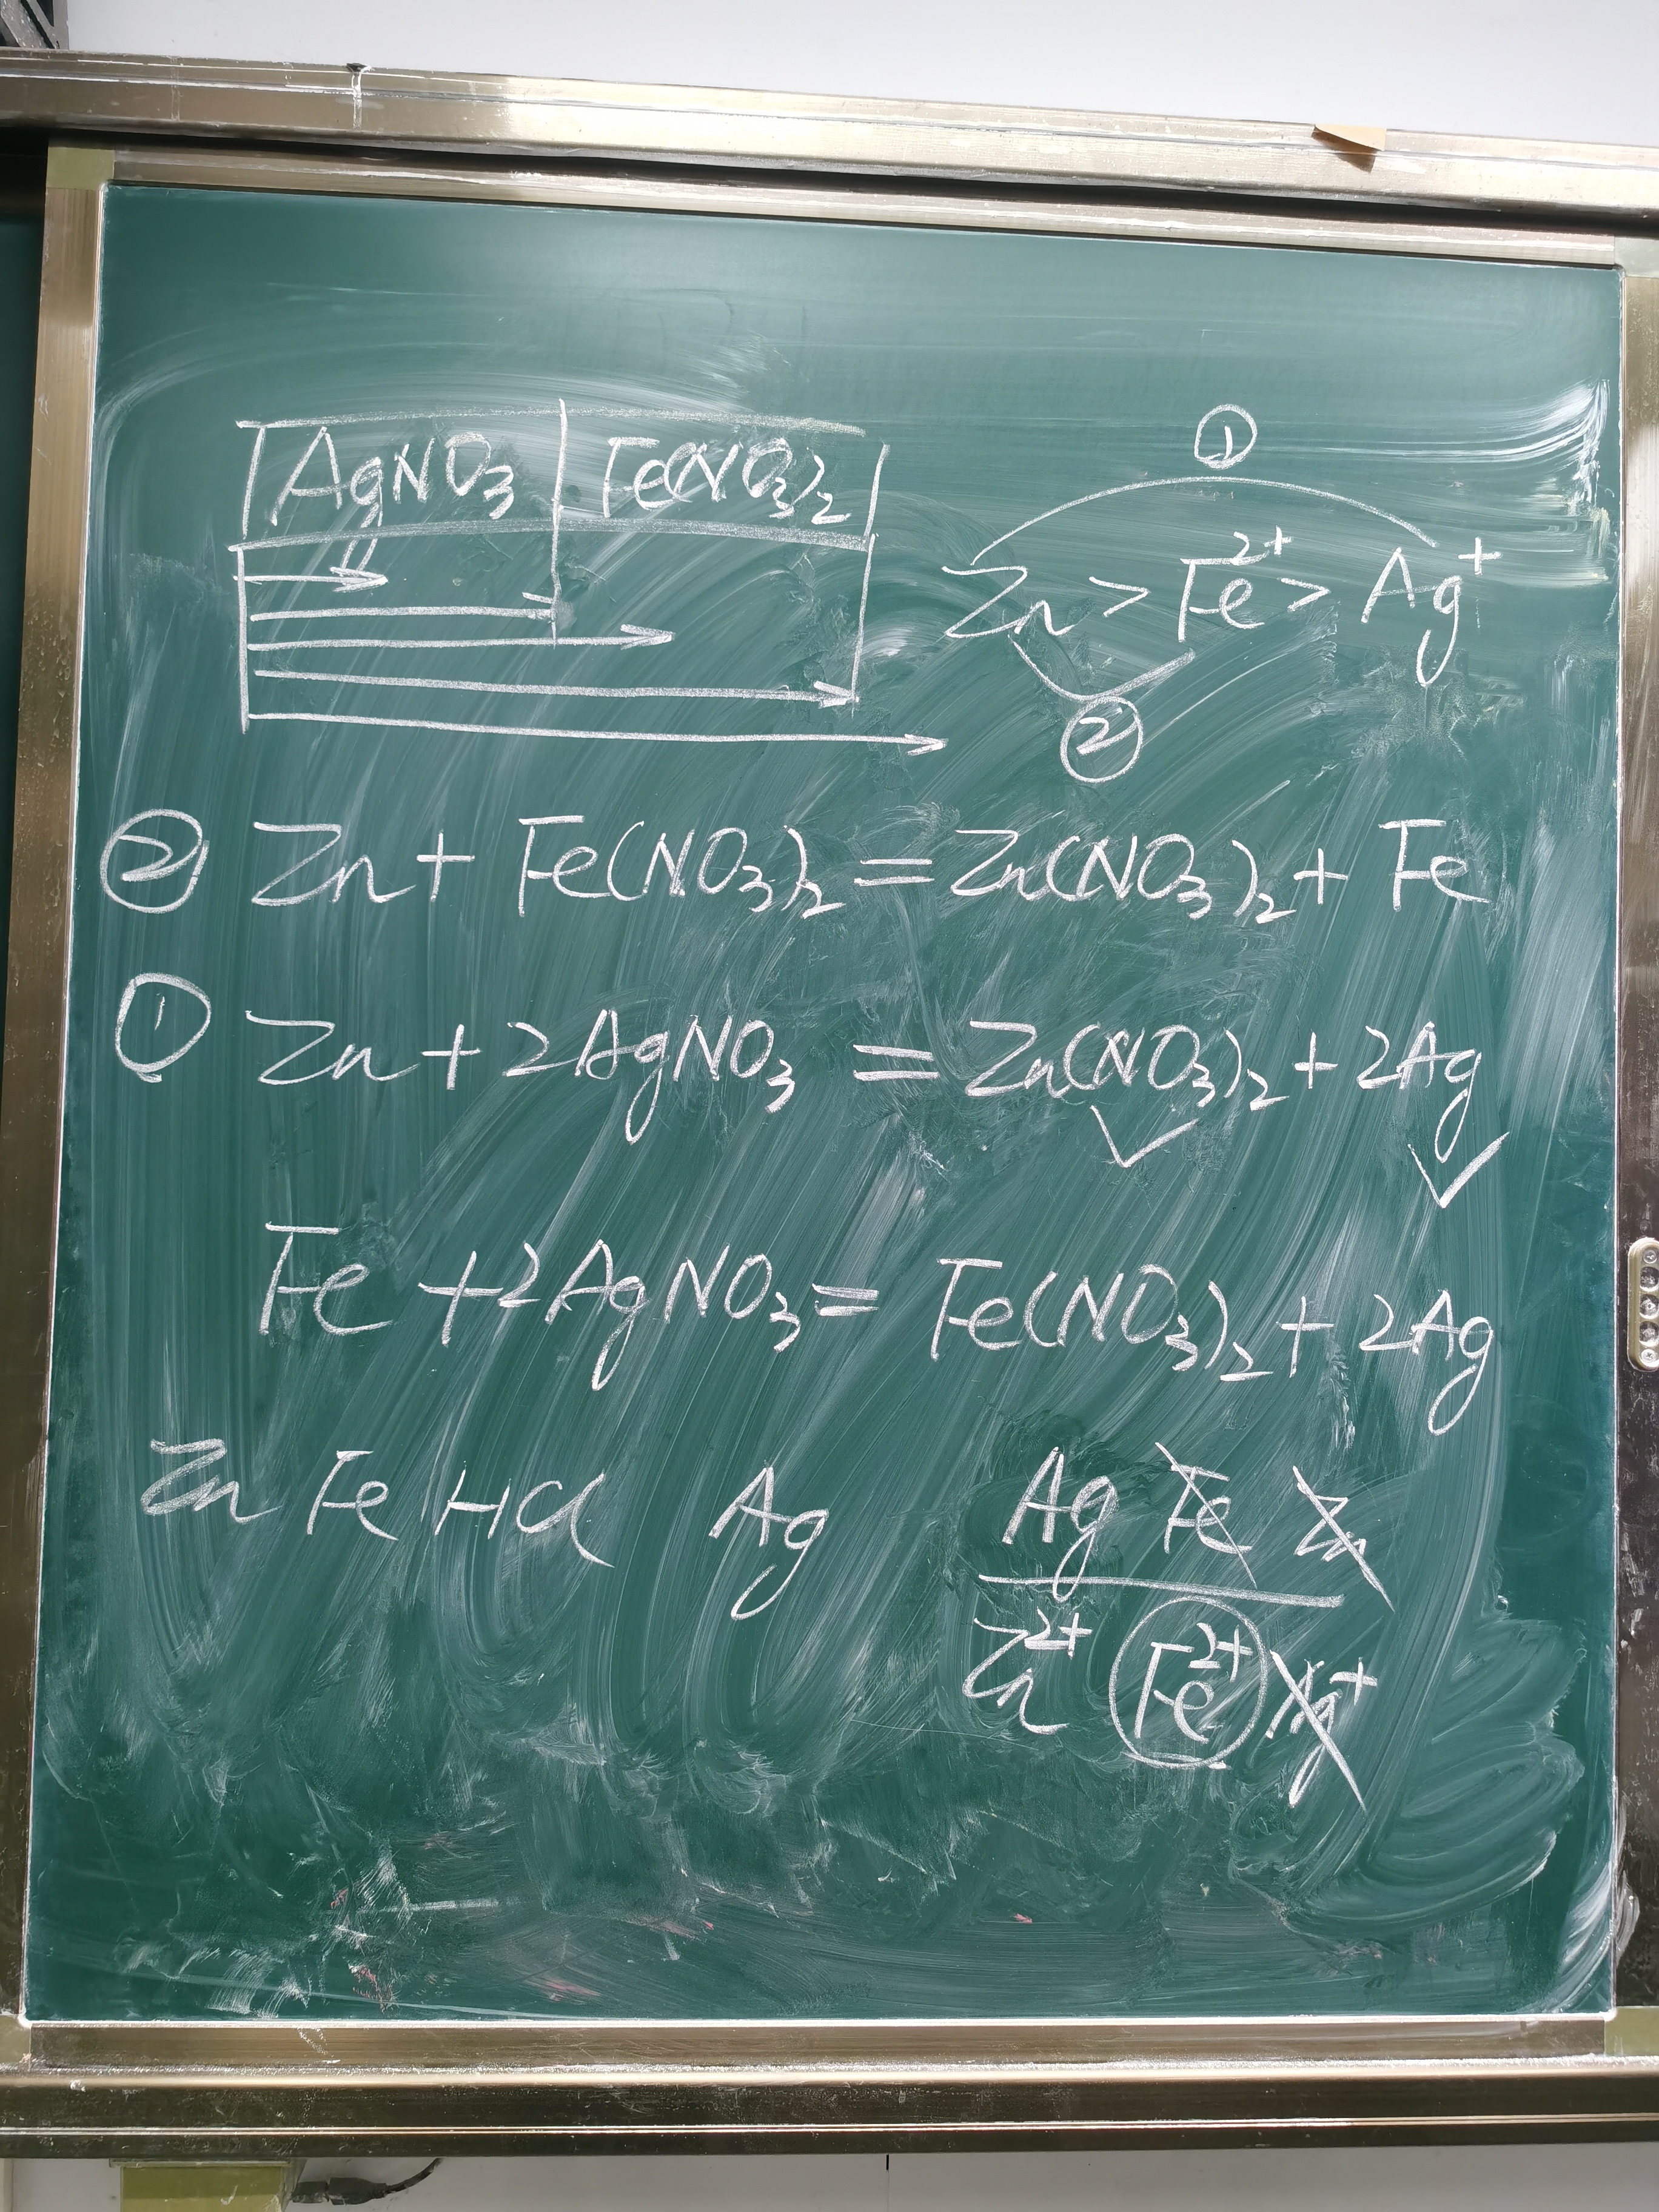 AgNO₃ Fe(NO₃)₂
①
Zn > Fe²⁺ > Ag⁺
②
② Zn + Fe(NO₃)₂ = Zn(NO₃)₂ + Fe
① Zn + 2AgNO₃ = Zn(NO₃)₂ + 2Ag
Fe + 2AgNO₃ = Fe(NO₃)₂ + 2Ag
Zn Fe HCl Ag
Ag Fe Zn
Zn²⁺ Fe²⁺ Ag⁺